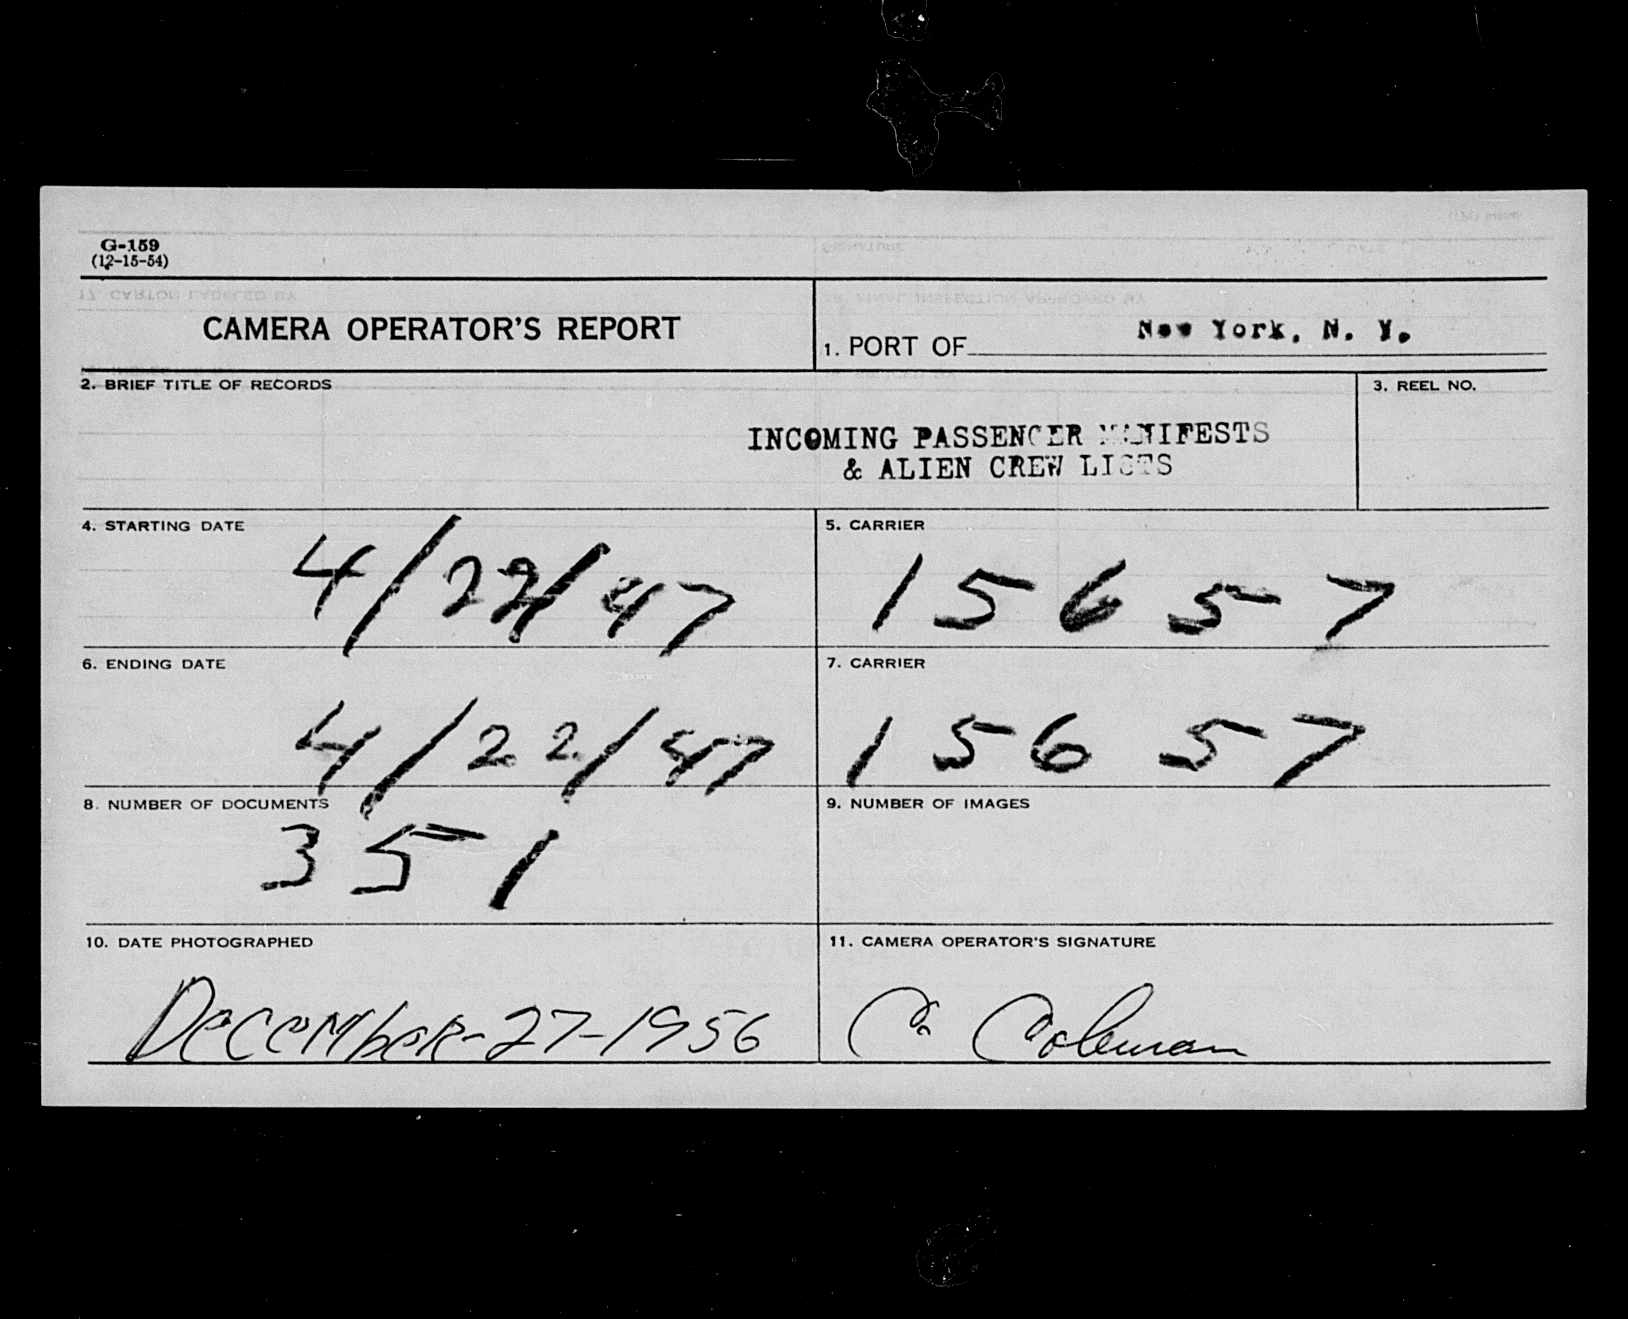 G-159
(12-15-54)
CAMERA OPERATOR'S REPORT
1. PORT OF New York, N. Y.
2. BRIEF TITLE OF RECORDS
3. REEL NO.
INCOMING PASSENGER MANIFESTS
& ALIEN CREW LISTS
4. STARTING DATE
4/22/47
5. CARRIER
15657
6. ENDING DATE
4/22/47
7. CARRIER
15657
8. NUMBER OF DOCUMENTS
351
9. NUMBER OF IMAGES
10. DATE PHOTOGRAPHED
December-27-1956
11. CAMERA OPERATOR'S SIGNATURE
C. Coleman